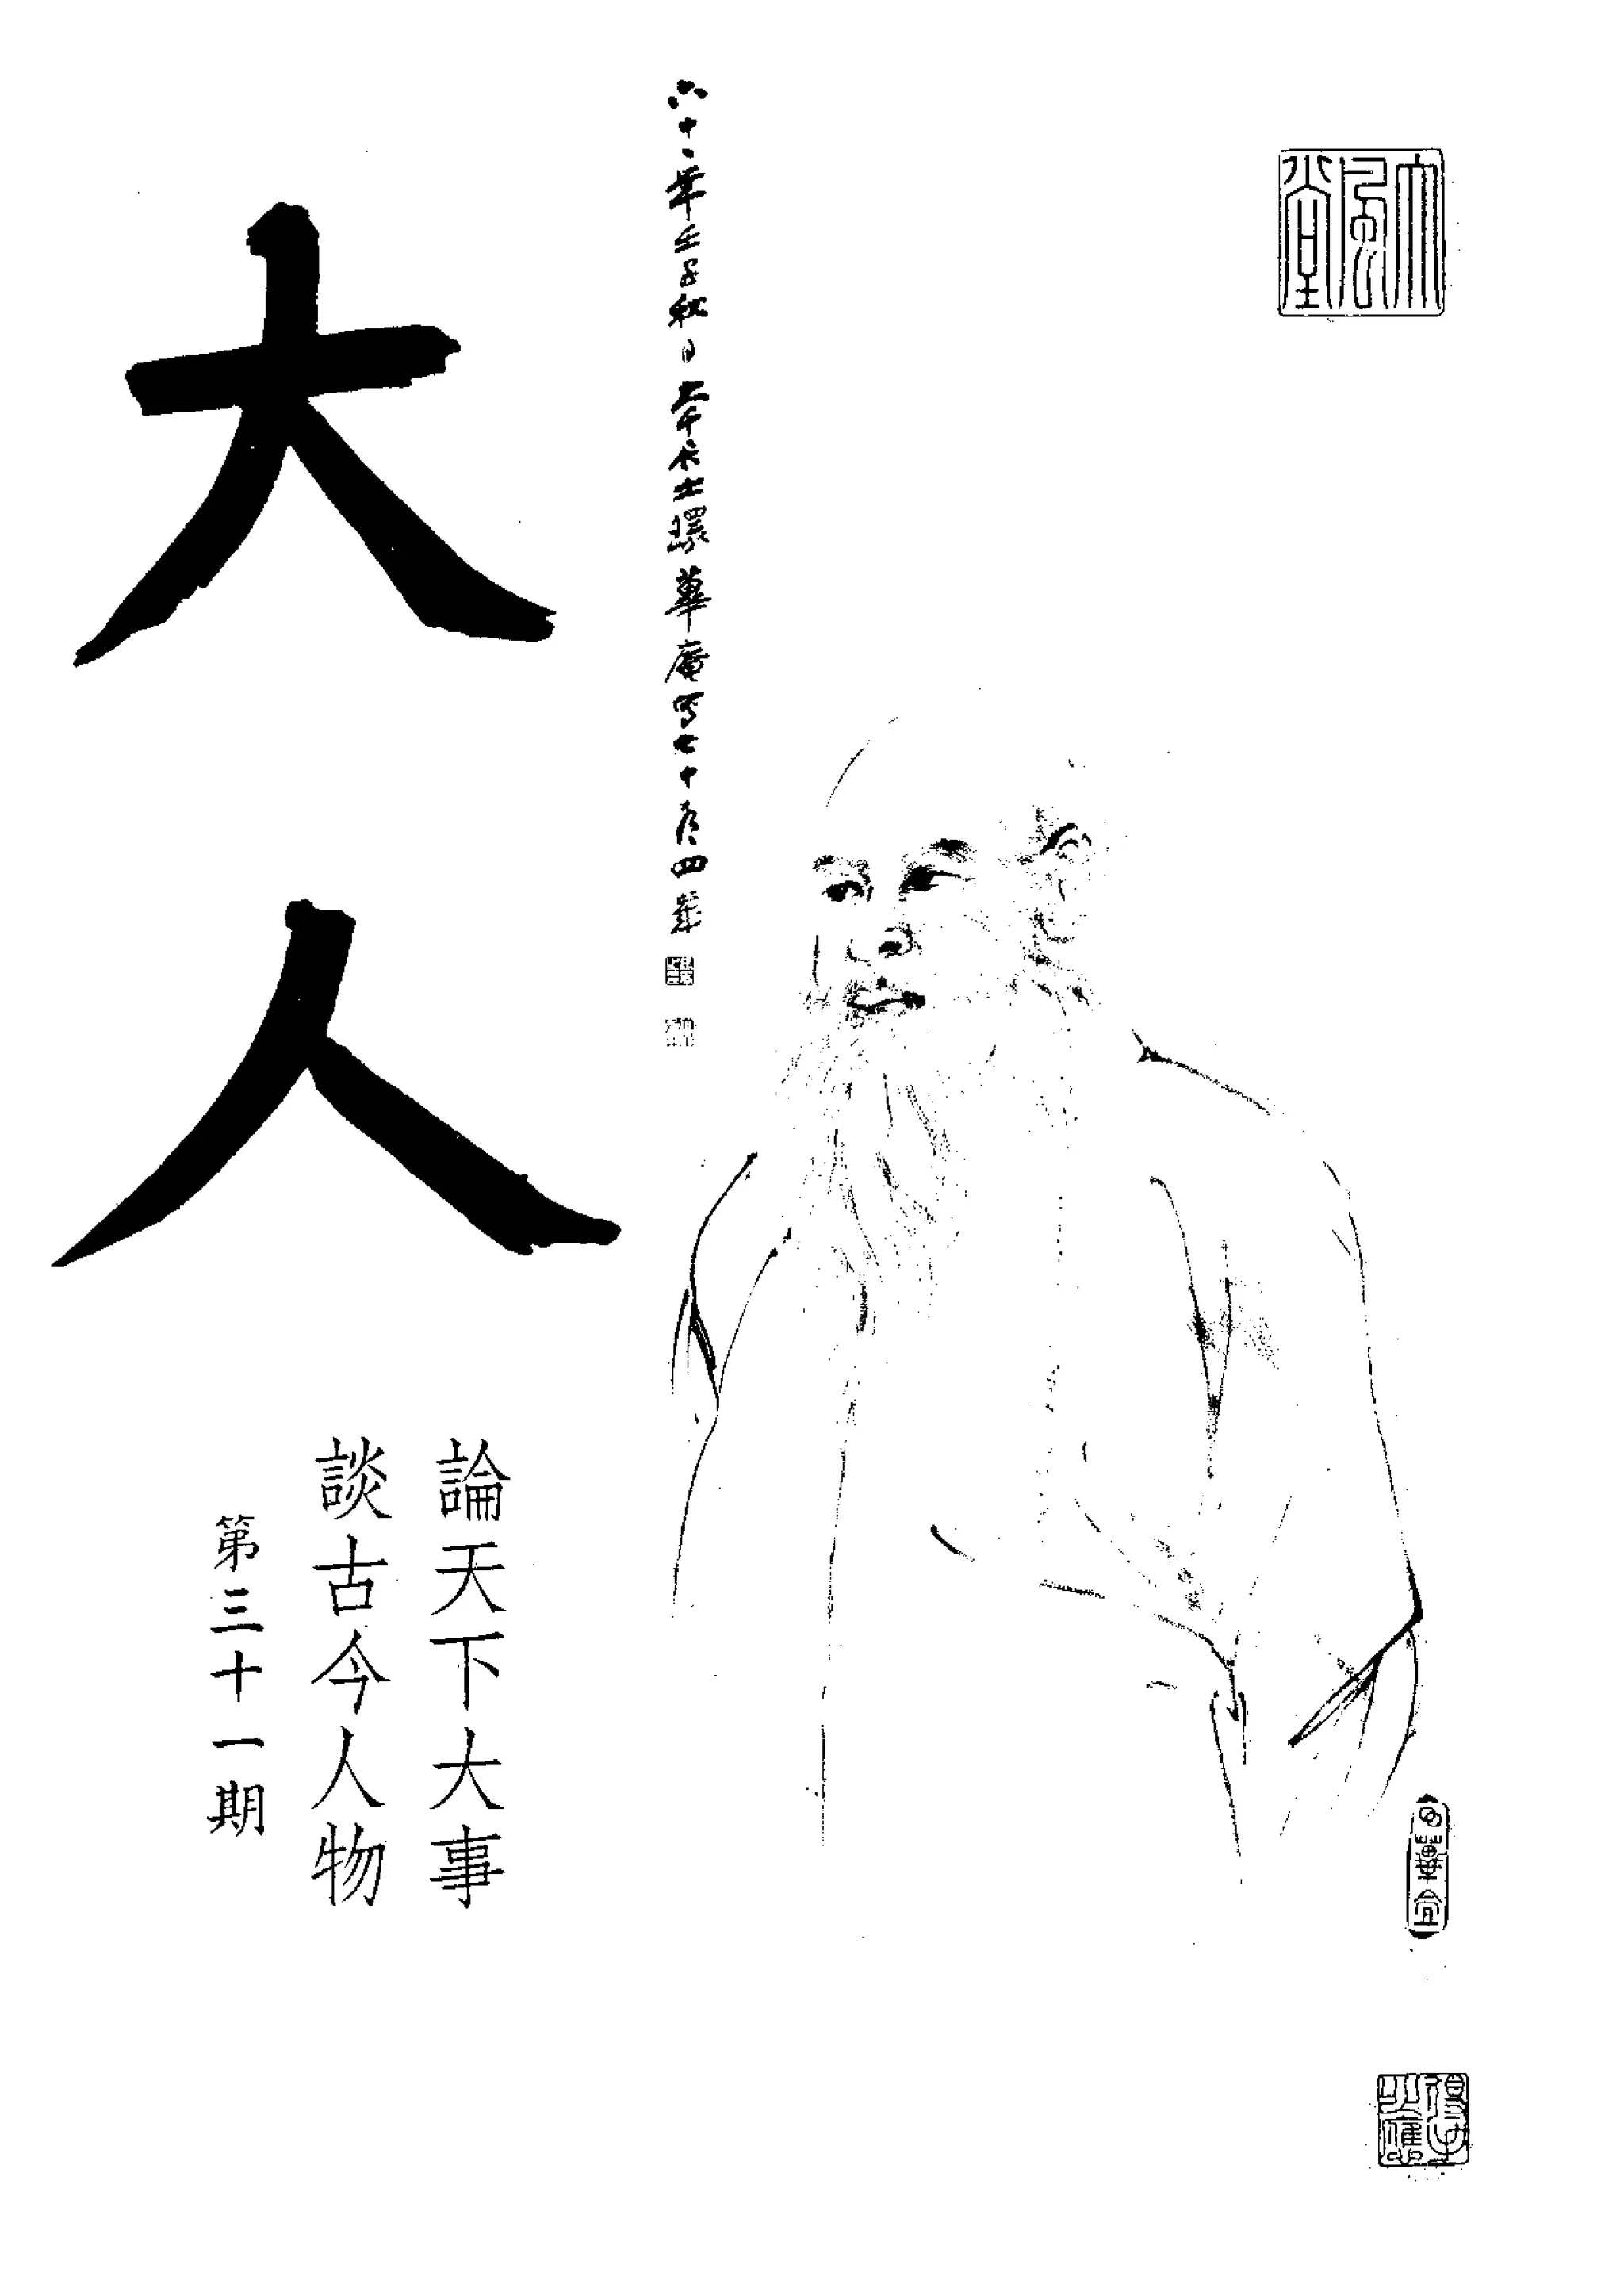 大風堂
六十一年壬子秋日大千居士環蓽庵寫七十有四歲
大人
論天下大事
談古今人物
第三十一期